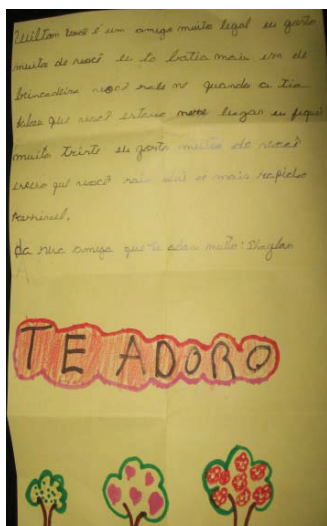 Wiltom você é um amigo muito legal eu gosto
muito de você eu to batia mais era de
brincadeira você sabe ne quando a tia
falou que você estava lugar eu fiquei
muito triste eu gosto muito de você
espero que você saia daí o mais rapido
Da sua amiga que te adora muito:
TE ADORO